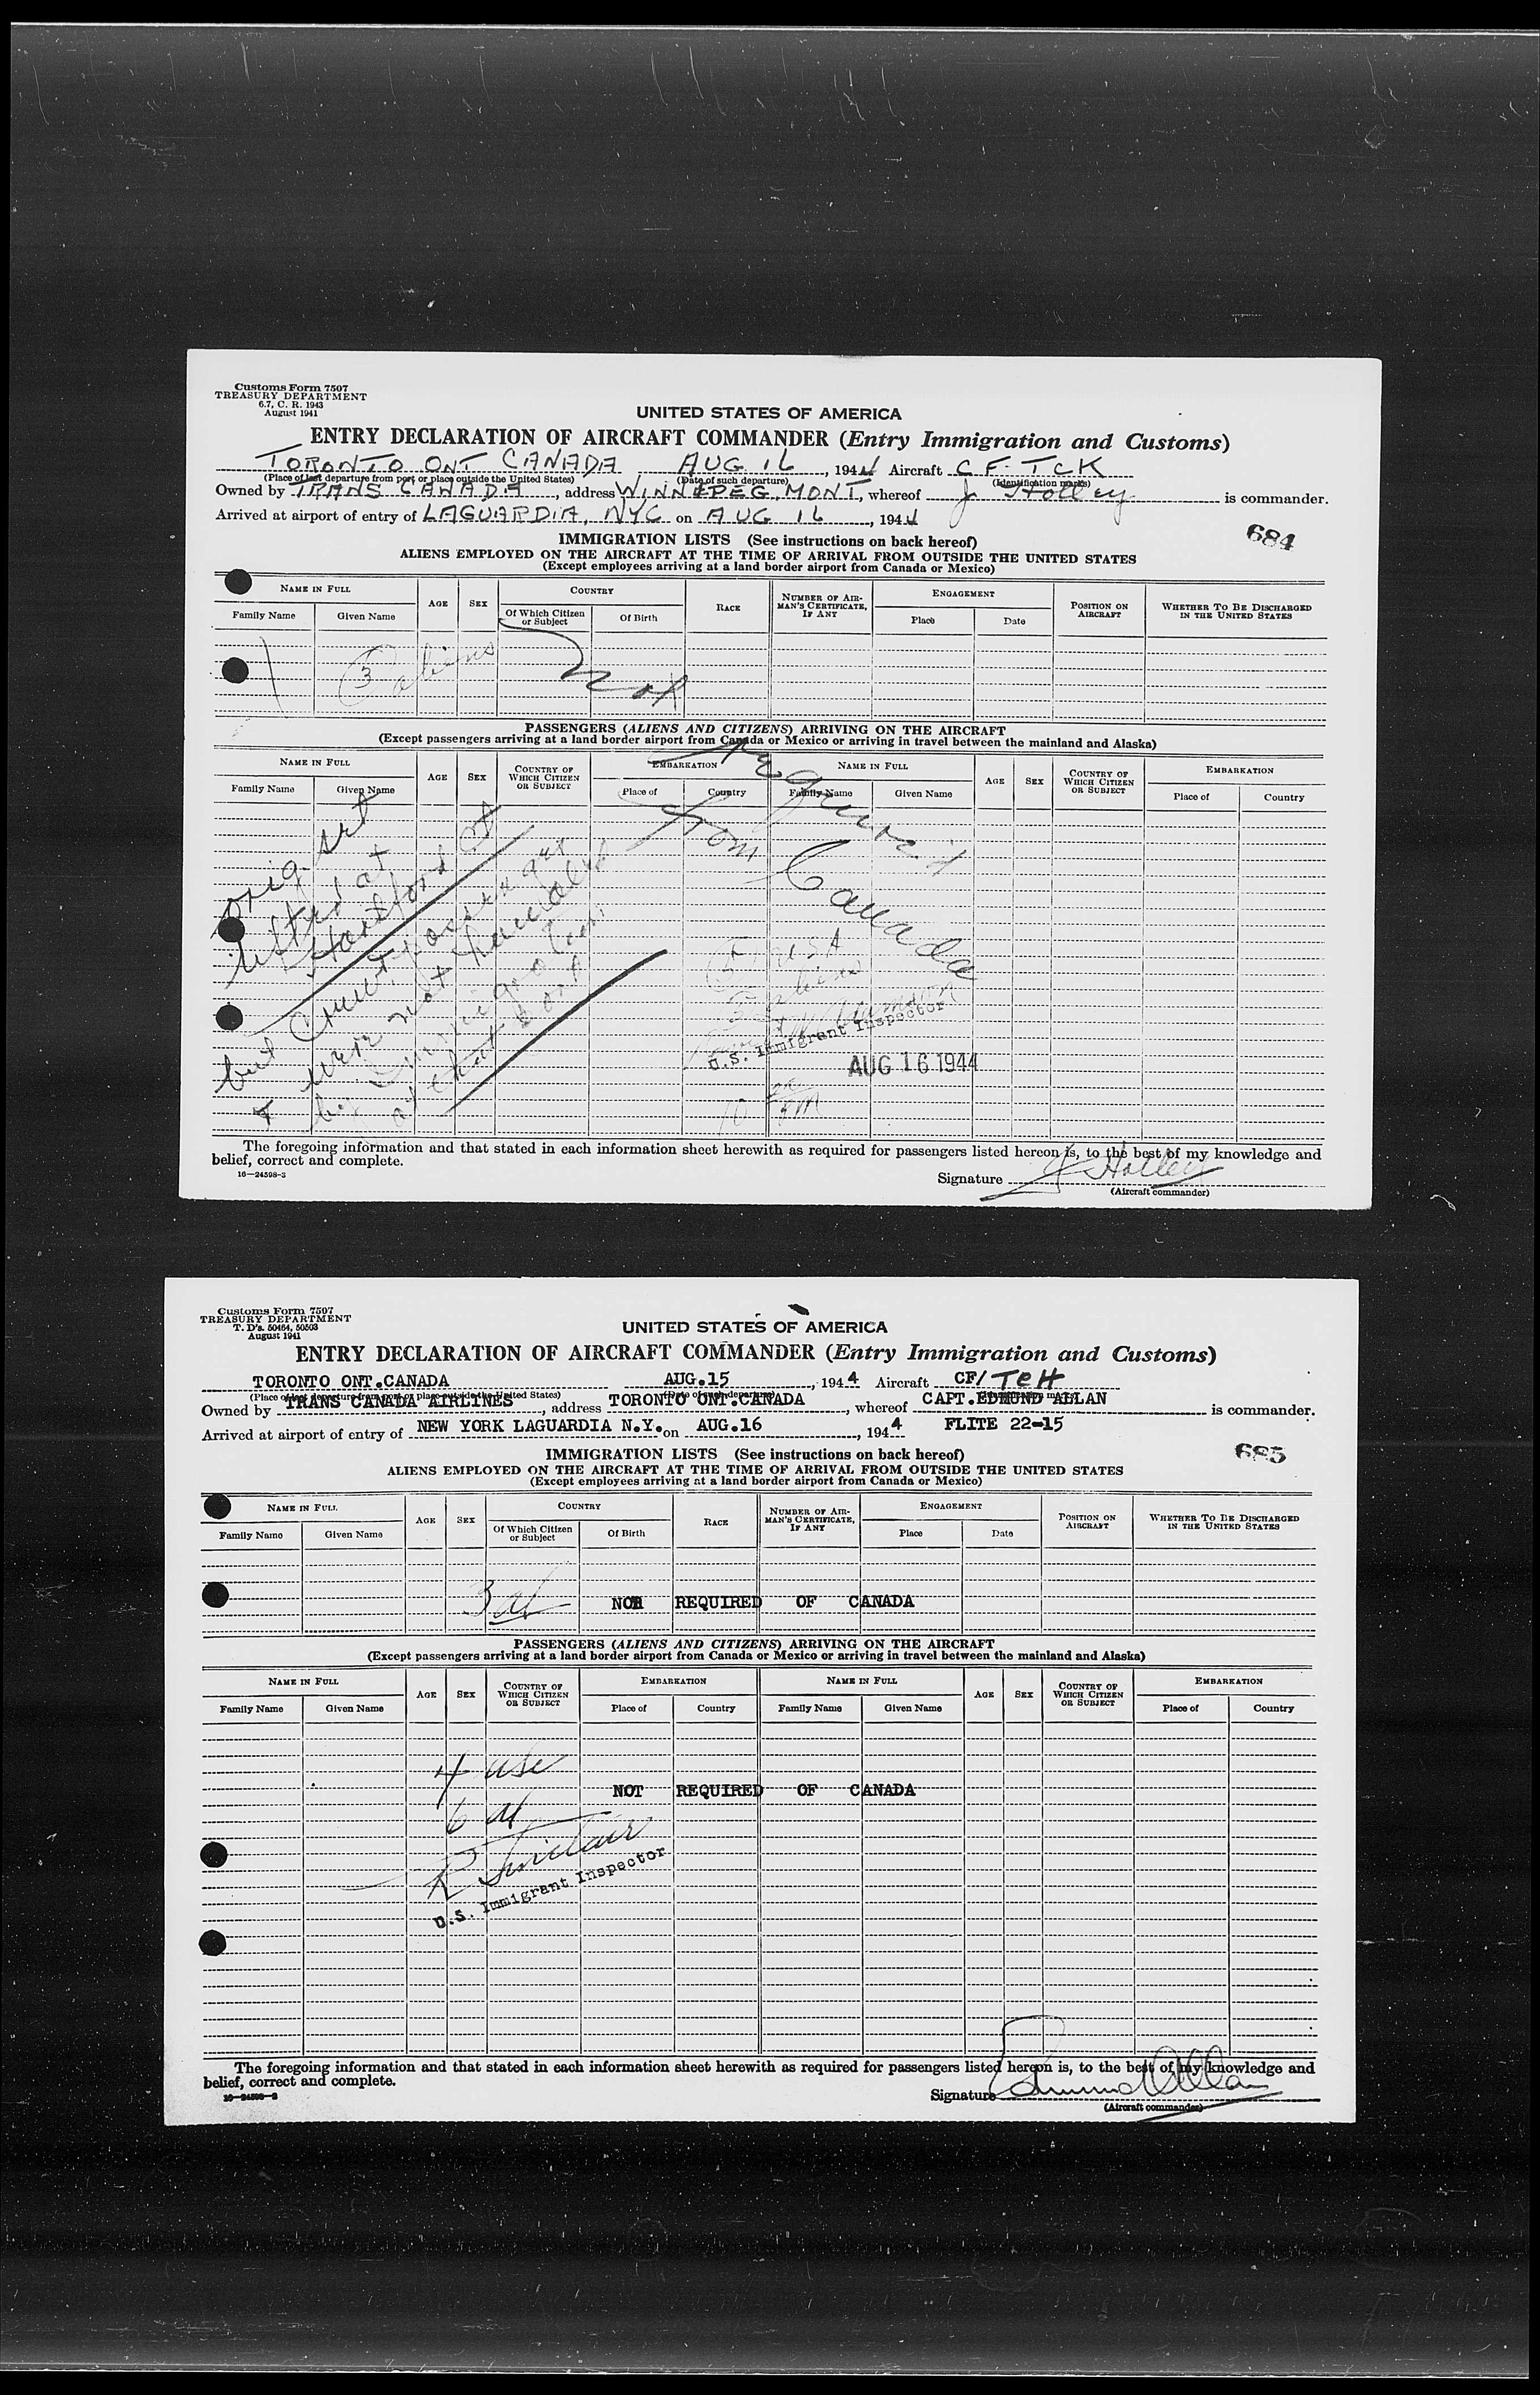 Customs Form 7507
TREASURY DEPARTMENT
6.7, C. R. 1943
August 1941
UNITED STATES OF AMERICA
ENTRY DECLARATION OF AIRCRAFT COMMANDER (Entry Immigration and Customs)
TORONTO ONT CANADA AUG 16, 1944 Aircraft CF-TCK
(Place of last departure from port or place outside the United States) (Date of such departure) (Identification marks)
Owned by TRANS CANADA, address WINNEPEG, MONT, whereof J Holley is commander.
Arrived at airport of entry of LAGUARDIA, NYC on AUG 16, 1944
684
IMMIGRATION LISTS (See instructions on back hereof)
ALIENS EMPLOYED ON THE AIRCRAFT AT THE TIME OF ARRIVAL FROM OUTSIDE THE UNITED STATES
(Except employees arriving at a land border airport from Canada or Mexico)
NAME IN FULL AGE SEX COUNTRY RACE NUMBER OF AIRMAN'S CERTIFICATE, IF ANY ENGAGEMENT POSITION ON AIRCRAFT WHETHER TO BE DISCHARGED IN THE UNITED STATES
Family Name Given Name Of Which Citizen or Subject Of Birth Place Date
3 aliens
Not
PASSENGERS (ALIENS AND CITIZENS) ARRIVING ON THE AIRCRAFT
(Except passengers arriving at a land border airport from Canada or Mexico or arriving in travel between the mainland and Alaska)
NAME IN FULL AGE SEX COUNTRY OF WHICH CITIZEN OR SUBJECT EMBARKATION NAME IN FULL AGE SEX COUNTRY OF WHICH CITIZEN OR SUBJECT EMBARKATION
Family Name Given Name Place of Country Family Name Given Name Place of Country
required
from
Canada
orig. set
lifted at
Hartford Ct
but crew & passenger
were not handled
by Immigration
at that port
5 USA
3 aliens
U.S. Immigrant Inspector
AUG 16 1944
10 PM
The foregoing information and that stated in each information sheet herewith as required for passengers listed hereon is, to the best of my knowledge and
belief, correct and complete.
16—24598-3
Signature J Holley
(Aircraft commander)
Customs Form 7507
TREASURY DEPARTMENT
T. D's. 50464, 50503
August 1941
UNITED STATES OF AMERICA
ENTRY DECLARATION OF AIRCRAFT COMMANDER (Entry Immigration and Customs)
TORONTO ONT.CANADA AUG.15, 1944 Aircraft CF/TCH
(Place of last departure from port or place outside the United States) (Date of such departure) (Identification marks)
Owned by TRANS CANADA AIRLINES, address TORONTO ONT.CANADA, whereof CAPT.EDMUND ALLAN is commander.
Arrived at airport of entry of NEW YORK LAGUARDIA N.Y. on AUG.16, 1944 FLITE 22-15
685
IMMIGRATION LISTS (See instructions on back hereof)
ALIENS EMPLOYED ON THE AIRCRAFT AT THE TIME OF ARRIVAL FROM OUTSIDE THE UNITED STATES
(Except employees arriving at a land border airport from Canada or Mexico)
NAME IN FULL AGE SEX COUNTRY RACE NUMBER OF AIRMAN'S CERTIFICATE, IF ANY ENGAGEMENT POSITION ON AIRCRAFT WHETHER TO BE DISCHARGED IN THE UNITED STATES
Family Name Given Name Of Which Citizen or Subject Of Birth Place Date
3 al NOT REQUIRED OF CANADA
PASSENGERS (ALIENS AND CITIZENS) ARRIVING ON THE AIRCRAFT
(Except passengers arriving at a land border airport from Canada or Mexico or arriving in travel between the mainland and Alaska)
NAME IN FULL AGE SEX COUNTRY OF WHICH CITIZEN OR SUBJECT EMBARKATION NAME IN FULL AGE SEX COUNTRY OF WHICH CITIZEN OR SUBJECT EMBARKATION
Family Name Given Name Place of Country Family Name Given Name Place of Country
4 usc
NOT REQUIRED OF CANADA
6 al
R Sinclair
U.S. Immigrant Inspector
The foregoing information and that stated in each information sheet herewith as required for passengers listed hereon is, to the best of my knowledge and
belief, correct and complete.
Signature Edmund Allan
(Aircraft commander)